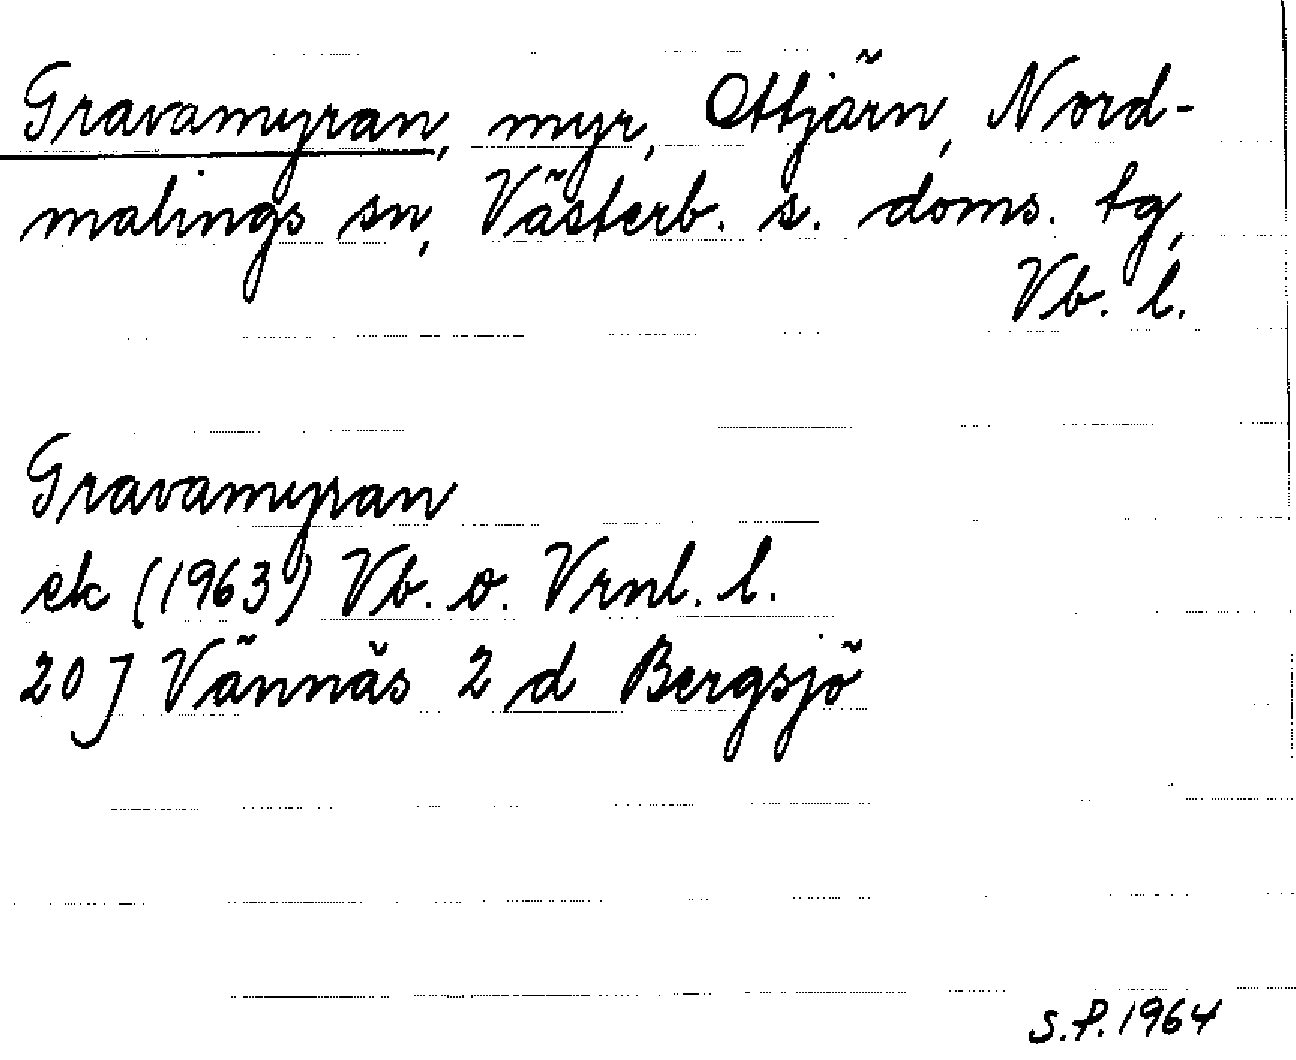 Gravamyran, myr, Ottjärn, Nord-
malings sn, Västerb. s. doms. tg,
Vb. l.
Gravamyran
ek (1963) Vb. o. Vrnl. l.
20 J Vännäs 2 d Bergsjö
S.P. 1964